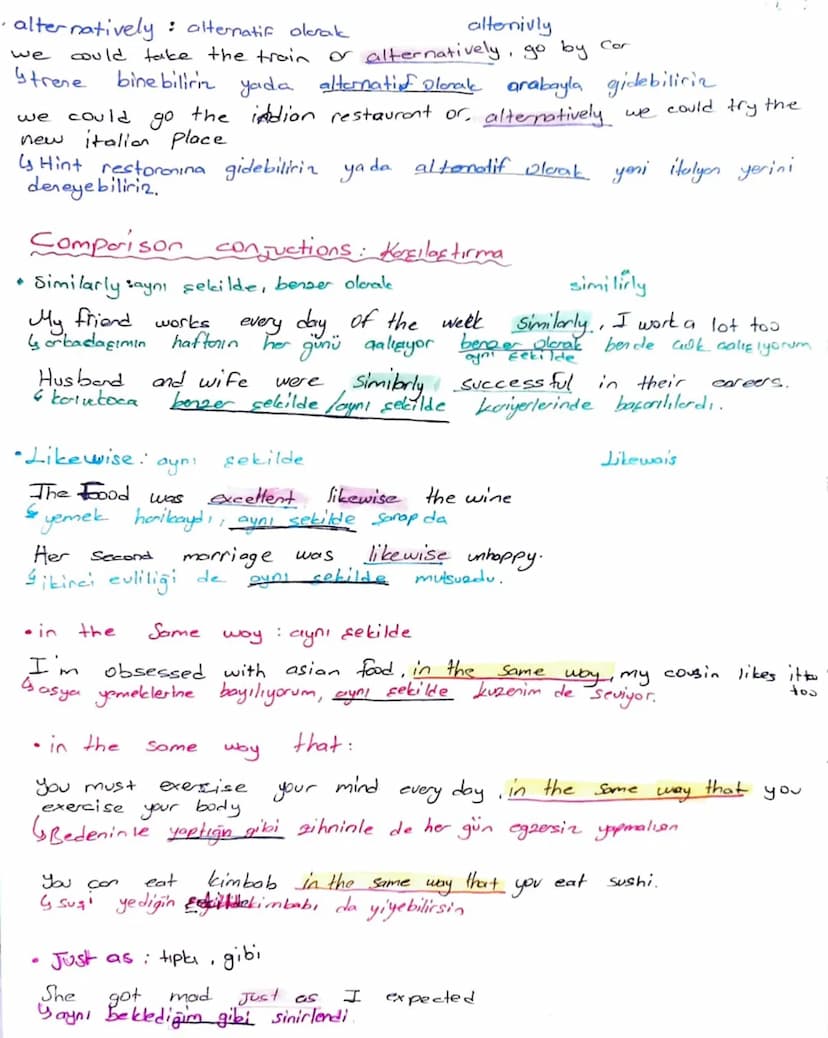 • alternatively : alternatif olarak altenivly
we could take the train or alternatively, go by car
↳ trene binebiliriz yada alternatif olarak arabayla gidebiliriz
we could go the indian restaurant or, alternatively we could try the
new italian Place
↳ Hint restoranına gidebiliriz yada alternatif olarak yeni italyan yerini
deneyebiliriz.
Comparison conjuctions : Karşılaştırma
• Similarly : aynı şekilde, benzer olarak similırly
My friend works every day of the week similarly, I work a lot too
↳ arkadaşımın haftanın her günü çalışıyor benzer olarak bende çok çalışıyorum
aynı şekilde
Husband and wife were similarly successful in their careers.
↳ karı koca benzer şekilde /aynı şekilde kariyerlerinde başarılılardı.
• Likewise : aynı şekilde Likewais
The Food was excellent likewise the wine
↳ yemek harikaydı, aynı şekilde şarap da
Her second marriage was likewise unhappy.
↳ ikinci evliliği de aynı şekilde mutsuzdu.
• in the Same way : aynı şekilde
I'm obsessed with asian food, in the same way, my cousin likes it
too
↳ asya yemeklerine bayılıyorum, aynı şekilde kuzenim de seviyor.
• in the same way that :
You must exercise your mind every day, in the same way that you
exercise your body
↳ Bedeninle yaptığın gibi zihninle de her gün egzersiz yapmalısın
You can eat kimbab in the same way that you eat sushi.
↳ suşi yediğin şekilde kimbabı da yiyebilirsin
• Just as : tıpkı, gibi
She got mad just as I expected
↳ aynı beklediğim gibi sinirlendi.